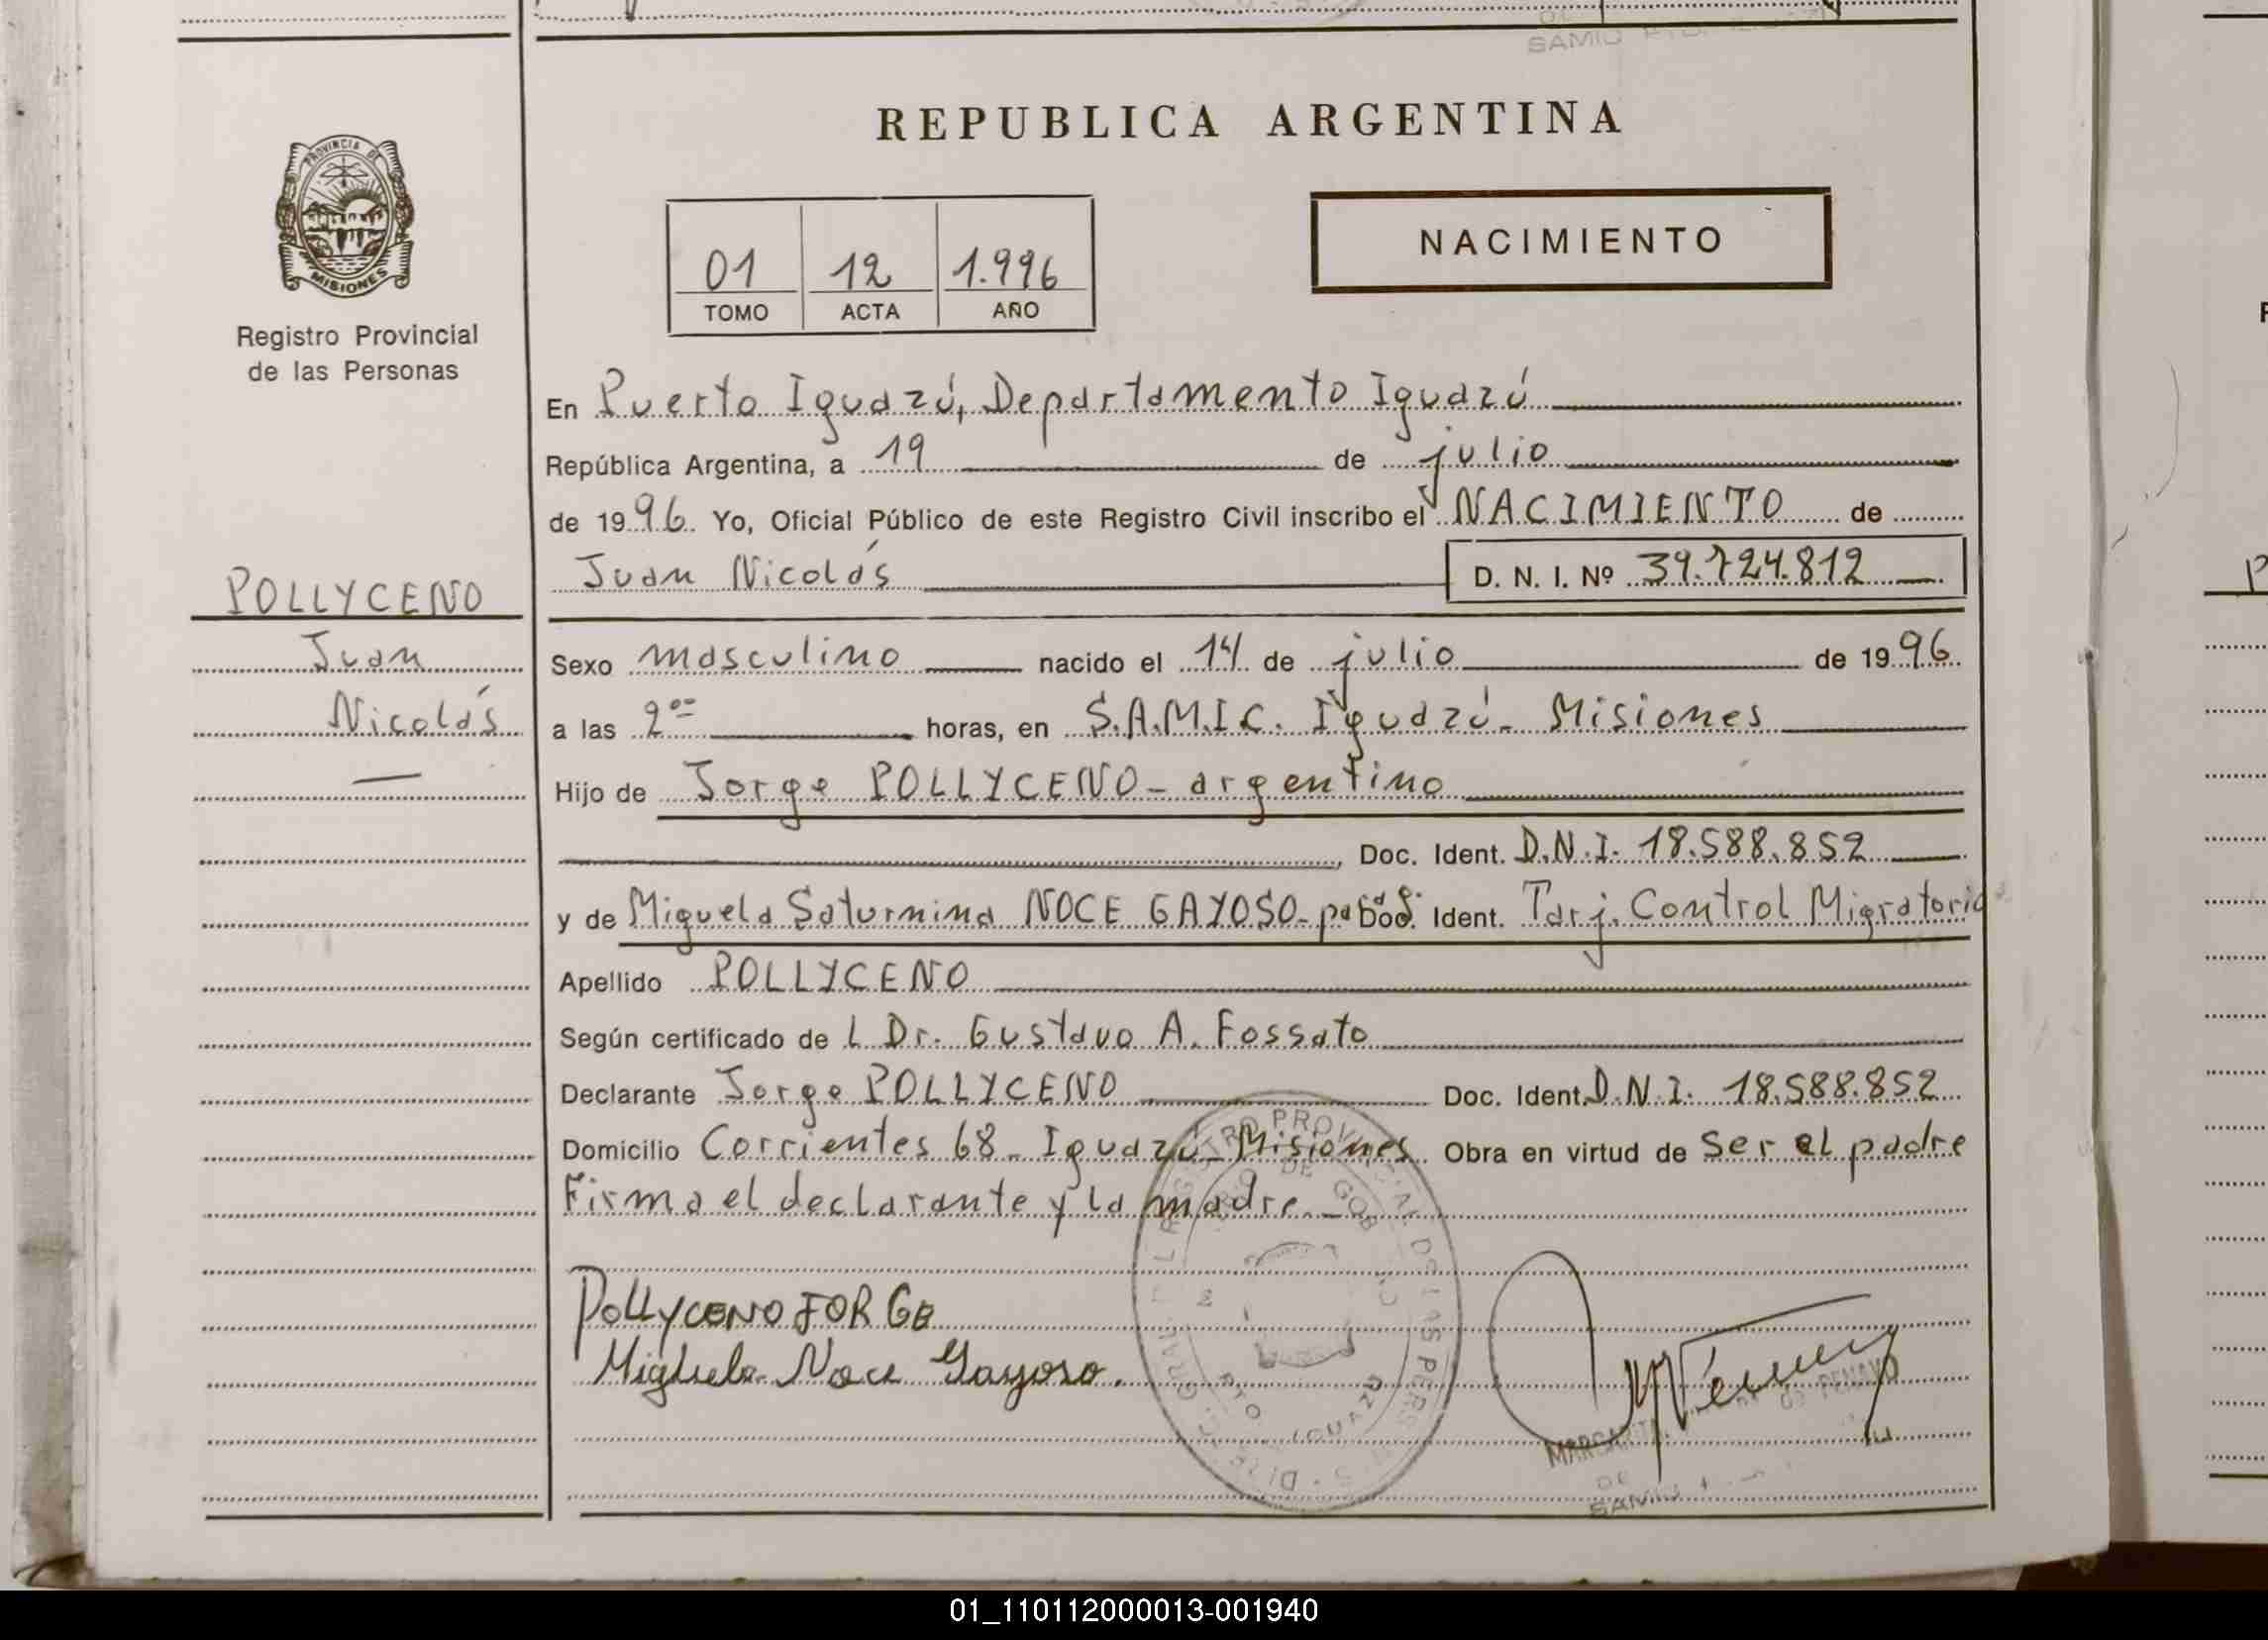 REPUBLICA ARGENTINA
PROVINCIA DE
MISIONES
Registro Provincial
de las Personas
01 12 1.996
TOMO ACTA AÑO
NACIMIENTO
En Puerto Iguazú, Departamento Iguazú
República Argentina, a 19 de julio
de 1996. Yo, Oficial Público de este Registro Civil inscribo el NACIMIENTO de
Juan Nicolás D. N. I. Nº 39.724.812
POLLYCENO
Juan
Nicolás
Sexo masculino nacido el 14 de julio de 1996.
a las 2⁰⁰ horas, en S.A.M.I.C. Iguazú - Misiones
Hijo de Jorge POLLYCENO - argentino
Doc. Ident. D.N.I. 18.588.852
y de Miguela Saturnina NOCE GAYOSO - Doc. Ident. Tarj. Control Migratorio
Apellido POLLYCENO
Según certificado de L Dr. Gustavo A. Fossato
Declarante Jorge POLLYCENO Doc. Ident. D.N.I. 18.588.852
Domicilio Corrientes 68 - Iguazú - Misiones Obra en virtud de Ser el padre
Firma el declarante y la madre. -
POLLYCENO JORGE
Miguela Noce Gayoso.
MARGARITA de PENAYO
DE
SAMIC
01_110112000013-001940